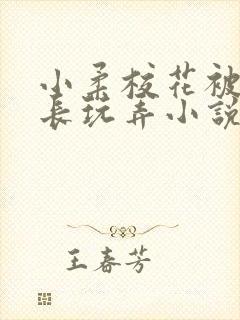 小柔校花被
长玩弄小說
王春芳